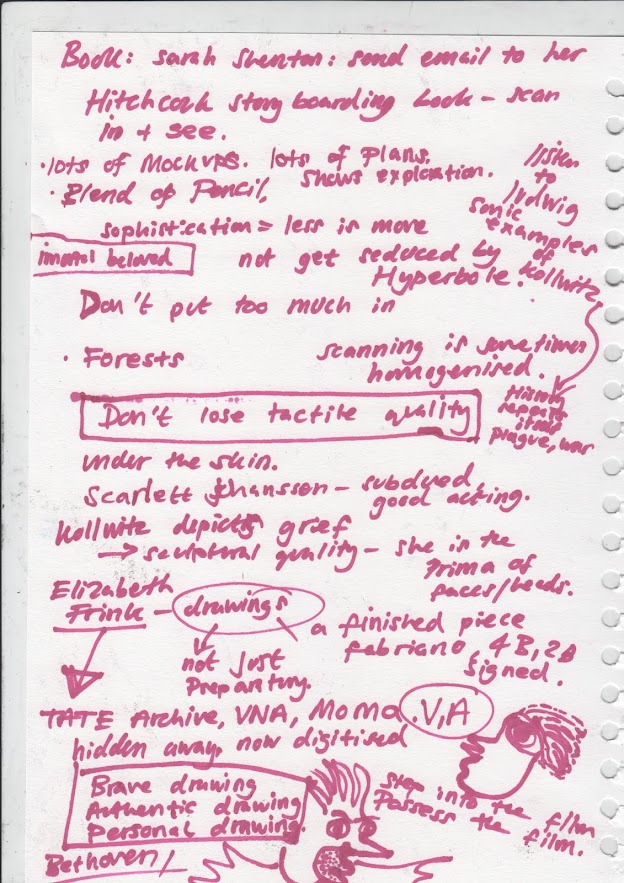 Book: sarah shenton: send email to her
Hitchcock story boarding book - scan
in + see.
· lots of Mockups. lots of plans.
· Blend of Pencil, shows exploration.
listen
to
ludwig
sonic
examples
of
kollwitz
sophistication = less is more
immortal beloved
not get seduced by
Hyperbole.
Don't put too much in
· Forests
scanning is sometimes
homogenised.
Don't lose tactile quality
History
repeat
itself
plague, war
under the skin.
Scarlett johansson - subdued
good acting.
Kollwitz depicts grief
→ sculptural quality - she is the
Prima of
faces/heads.
Elizabeth
Frink - drawings
a finished piece
fabriano 4B, 2B
signed.
not just
preparatory.
TATE Archive, VNA, Moma. V,A
hidden away, now digitised
Brave drawing
Authentic drawing
Personal drawing.
step into the film
Possess the film.
Bethoven /